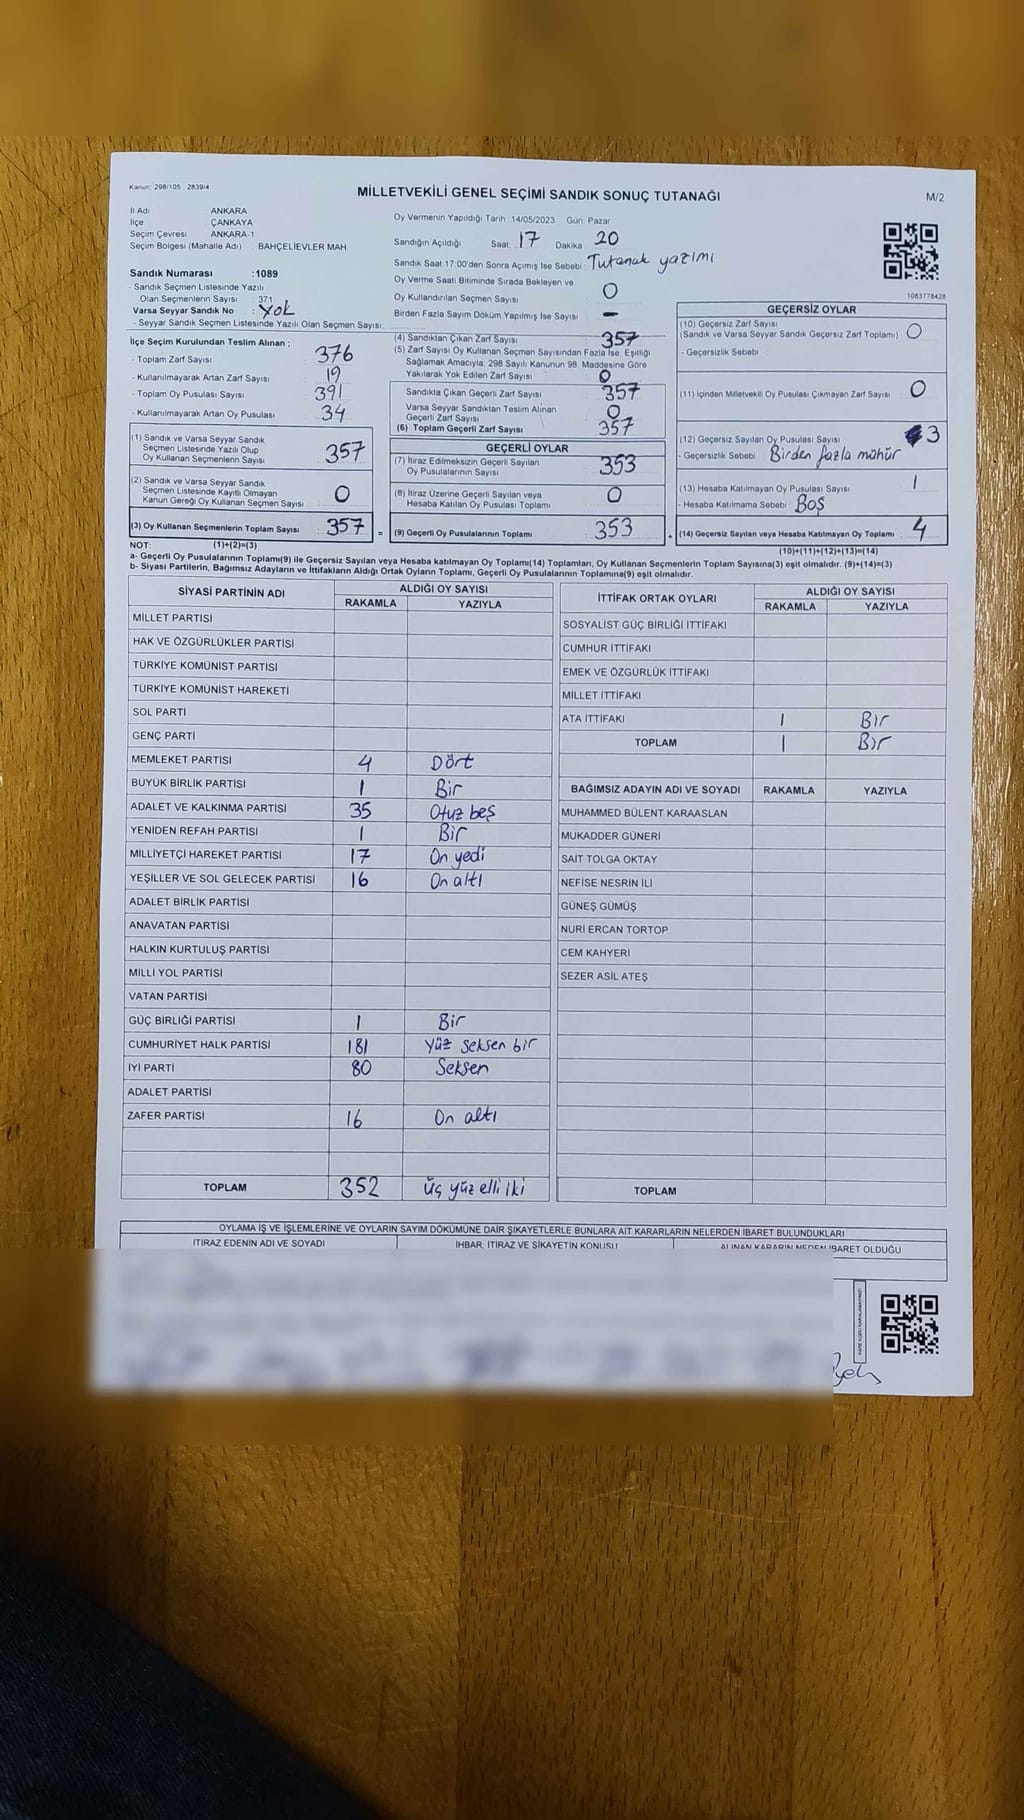 Kanun: 298/105 , 2839/4
MİLLETVEKİLİ GENEL SEÇİMİ SANDIK SONUÇ TUTANAĞI
M/2
İl Adı ANKARA
İlçe ÇANKAYA
Seçim Çevresi ANKARA-1
Seçim Bölgesi (Mahalle Adı) : BAHÇELİEVLER MAH
Sandık Numarası :1089
- Sandık Seçmen Listesinde Yazılı
Olan Seçmenlerin Sayısı : 371
Varsa Seyyar Sandık No : Yok
- Seyyar Sandık Seçmen Listesinde Yazılı Olan Seçmen Sayısı:
İlçe Seçim Kurulundan Teslim Alınan ;
- Toplam Zarf Sayısı 376
- Kullanılmayarak Artan Zarf Sayısı 19
- Toplam Oy Pusulası Sayısı 391
- Kullanılmayarak Artan Oy Pusulası 34
(1) Sandık ve Varsa Seyyar Sandık
Seçmen Listesinde Yazılı Olup
Oy Kullanan Seçmenlerin Sayısı 357
(2) Sandık ve Varsa Seyyar Sandık
Seçmen Listesinde Kayıtlı Olmayan
Kanun Gereği Oy Kullanan Seçmen Sayısı 0
(3) Oy Kullanan Seçmenlerin Toplam Sayısı : 357 =
Oy Vermenin Yapıldığı Tarih :14/05/2023 Gün: Pazar
Sandığın Açıldığı Saat: 17 Dakika : 20
Sandık Saat 17:00'den Sonra Açılmış İse Sebebi: Tutanak yazımı
Oy Verme Saati Bitiminde Sırada Bekleyen ve
Oy Kullandırılan Seçmen Sayısı 0
Birden Fazla Sayım Döküm Yapılmış İse Sayısı : -
(4) Sandıktan Çıkan Zarf Sayısı 357
(5) Zarf Sayısı Oy Kullanan Seçmen Sayısından Fazla İse, Eşitliği
Sağlamak Amacıyla, 298 Sayılı Kanunun 98. Maddesine Göre
Yakılarak Yok Edilen Zarf Sayısı 0
Sandıkta Çıkan Geçerli Zarf Sayısı 357
Varsa Seyyar Sandıktan Teslim Alınan
Geçerli Zarf Sayısı 0
(6) Toplam Geçerli Zarf Sayısı 357
GEÇERLİ OYLAR
(7) İtiraz Edilmeksizin Geçerli Sayılan
Oy Pusulalarının Sayısı 353
(8) İtiraz Üzerine Geçerli Sayılan veya
Hesaba Katılan Oy Pusulası Toplamı 0
(9) Geçerli Oy Pusulalarının Toplamı 353 +
1083778428
GEÇERSİZ OYLAR
(10) Geçersiz Zarf Sayısı
(Sandık ve Varsa Seyyar Sandık Geçersiz Zarf Toplamı) 0
- Geçersizlik Sebebi
(11) İçinden Milletvekili Oy Pusulası Çıkmayan Zarf Sayısı 0
(12) Geçersiz Sayılan Oy Pusulası Sayısı 3
- Geçersizlik Sebebi Birden fazla mühür
(13) Hesaba Katılmayan Oy Pusulası Sayısı 1
- Hesaba Katılmama Sebebi Boş
(14) Geçersiz Sayılan veya Hesaba Katılmayan Oy Toplamı : 4
NOT: (1)+(2)=(3)
(10)+(11)+(12)+(13)=(14)
a- Geçerli Oy Pusulalarının Toplamı(9) ile Geçersiz Sayılan veya Hesaba katılmayan Oy Toplamı(14) Toplamları, Oy Kullanan Seçmenlerin Toplam Sayısına(3) eşit olmalıdır. (9)+(14)=(3)
b- Siyasi Partilerin, Bağımsız Adayların ve İttifakların Aldığı Ortak Oyların Toplamı, Geçerli Oy Pusulalarının Toplamına(9) eşit olmalıdır.
SİYASİ PARTİNİN ADI ALDIĞI OY SAYISI
RAKAMLA YAZIYLA
MİLLET PARTİSİ
HAK VE ÖZGÜRLÜKLER PARTİSİ
TÜRKİYE KOMÜNİST PARTİSİ
TÜRKİYE KOMÜNİST HAREKETİ
SOL PARTİ
GENÇ PARTİ
MEMLEKET PARTİSİ 4 Dört
BÜYÜK BİRLİK PARTİSİ 1 Bir
ADALET VE KALKINMA PARTİSİ 35 Otuz beş
YENİDEN REFAH PARTİSİ 1 Bir
MİLLİYETÇİ HAREKET PARTİSİ 17 On yedi
YEŞİLLER VE SOL GELECEK PARTİSİ 16 On altı
ADALET BİRLİK PARTİSİ
ANAVATAN PARTİSİ
HALKIN KURTULUŞ PARTİSİ
MİLLİ YOL PARTİSİ
VATAN PARTİSİ
GÜÇ BİRLİĞİ PARTİSİ 1 Bir
CUMHURİYET HALK PARTİSİ 181 Yüz seksen bir
İYİ PARTİ 80 Seksen
ADALET PARTİSİ
ZAFER PARTİSİ 16 On altı
TOPLAM 352 Üç yüz elli iki
İTTİFAK ORTAK OYLARI ALDIĞI OY SAYISI
RAKAMLA YAZIYLA
SOSYALİST GÜÇ BİRLİĞİ İTTİFAKI
CUMHUR İTTİFAKI
EMEK VE ÖZGÜRLÜK İTTİFAKI
MİLLET İTTİFAKI
ATA İTTİFAKI 1 Bir
TOPLAM 1 Bir
BAĞIMSIZ ADAYIN ADI VE SOYADI RAKAMLA YAZIYLA
MUHAMMED BÜLENT KARAASLAN
MUKADDER GÜNERİ
SAİT TOLGA OKTAY
NEFİSE NESRİN İLİ
GÜNEŞ GÜMÜŞ
NURİ ERCAN TORTOP
CEM KAHYERİ
SEZER ASİL ATEŞ
TOPLAM
OYLAMA İŞ VE İŞLEMLERİNE VE OYLARIN SAYIM DÖKÜMÜNE DAİR ŞİKAYETLERLE BUNLARA AİT KARARLARIN NELERDEN İBARET BULUNDUKLARI
İTİRAZ EDENİN ADI VE SOYADI İHBAR, İTİRAZ VE ŞİKAYETİN KONUSU ALINAN KARARIN NEDEN İBARET OLDUĞU